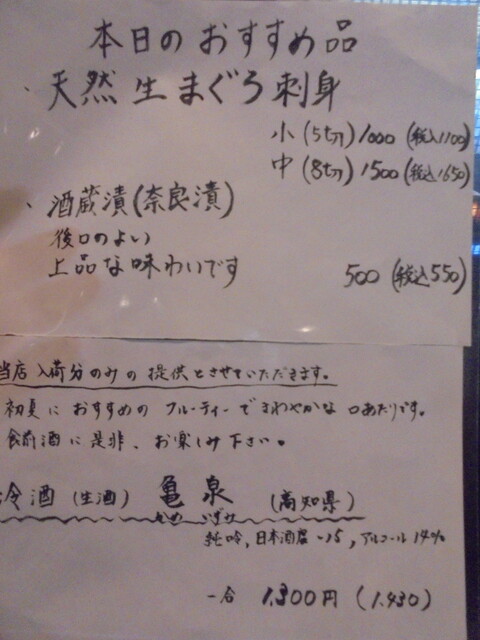 本日のおすすめ品
、天然 生まぐろ刺身
小(5切)1000(税込1100)
中(8切)1500(税込1650)
、酒蔵漬(奈良漬)
後口のよい
上品な味わいです 500(税込550)
当店入荷分のみの提供とさせていただきます。
初夏におすすめのフルーティーでさわやかな口あたりです。
食前酒に是非、お楽しみ下さい。
冷酒(生酒) 亀泉 (高知県)
かめ いずみ
純吟,日本酒度-15,アルコール14%
一合 1,300円(1,430)